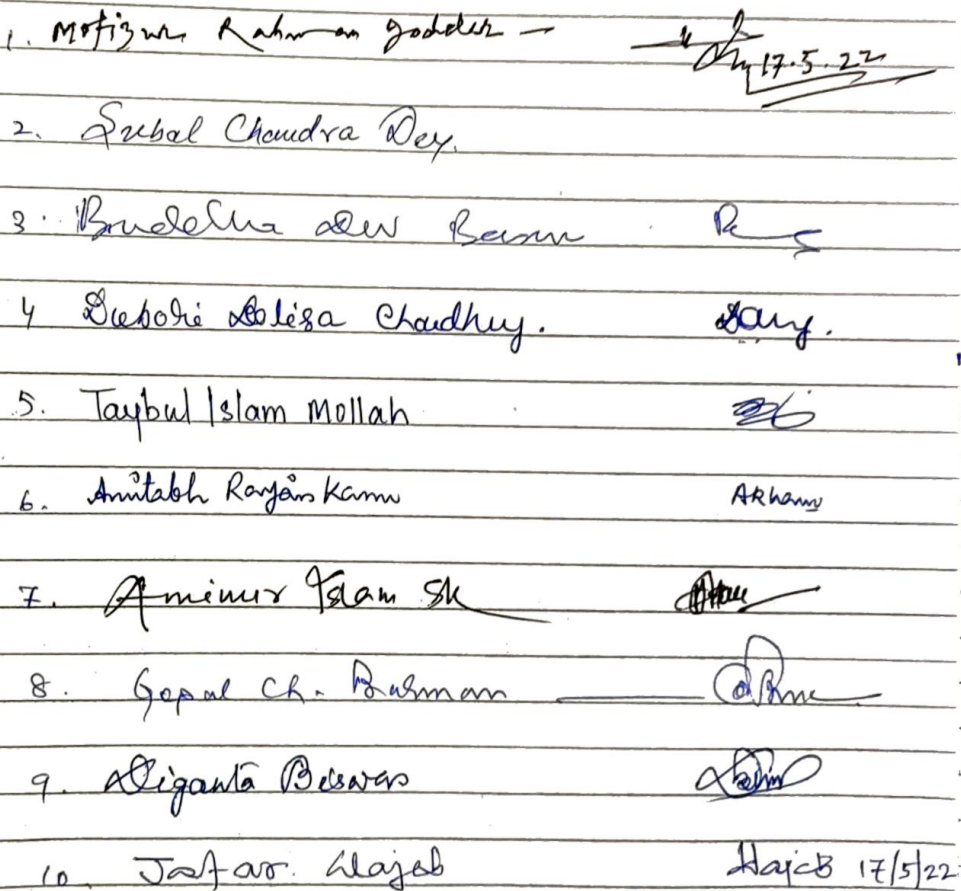 1. Motizur Rahman godder — 17.5.22
2. Subal Chandra Dey.
3. Buddha Dev Basu
4 Debolina Chaudhuy.
5. Taybul Islam Mollah
6. Amitabh Ranjan Kanu AKhanu
7. Aminur Islam Sk
8. Gopal Ch. Barman
9. Diganta Biswas
10. Jafar Hajeb Hajeb 17/5/22